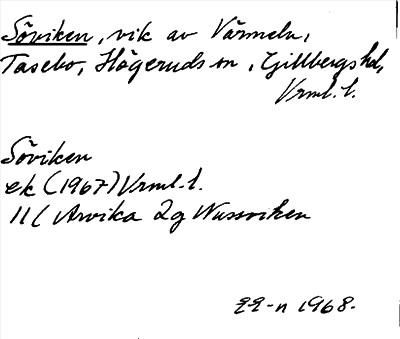 Söviken, vik av Värmeln,
Tasebo, Högeruds sn, Gillbergs hd,
Vrml. l.
Söviken
ek (1967) Vrml. l.
11C Arvika 2g Nussviken
1968.